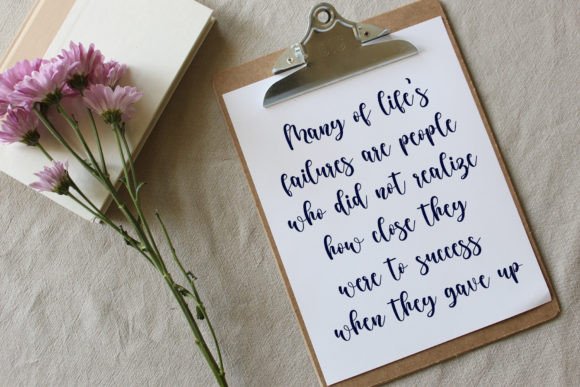 Many of life's
failures are people
who did not realize
how close they
were to success
when they gave up